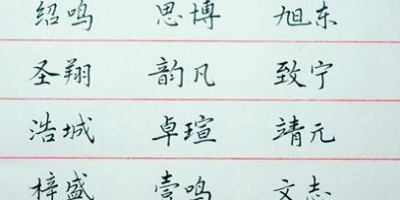 绍鸣 思博 旭东
圣翔 韵凡 致宁
浩城 卓瑄 靖元
梓盛 壹鸣 文志